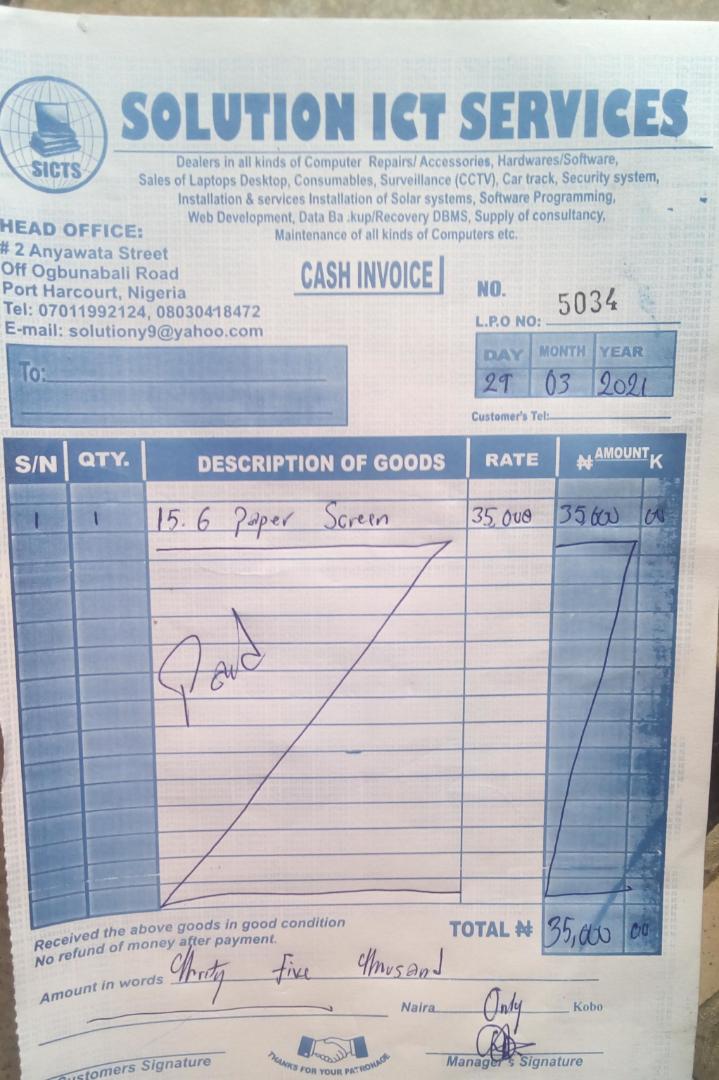 SOLUTION ICT SERVICES
SICTS
Dealers in all kinds of Computer Repairs/ Accessories, Hardwares/Software,
Sales of Laptops Desktop, Consumables, Surveillance (CCTV), Car track, Security system,
Installation & services Installation of Solar systems, Software Programming,
Web Development, Data Ba .kup/Recovery DBMS, Supply of consultancy,
Maintenance of all kinds of Computers etc.
HEAD OFFICE:
# 2 Anyawata Street
Off Ogbunabali Road
Port Harcourt, Nigeria
Tel: 07011992124, 08030418472
E-mail: solutiony9@yahoo.com
CASH INVOICE
NO. 5034
L.P.O NO:
DAY MONTH YEAR
29 03 2021
To:
Customer's Tel:
S/N QTY. DESCRIPTION OF GOODS RATE ₦ AMOUNT K
1 1 15.6 Paper Screen 35,000 35000 00
Paid
Received the above goods in good condition
No refund of money after payment.
TOTAL ₦ 35,000 00
Amount in words Thirty Five Thousand
Naira Only Kobo
Customers Signature
THANKS FOR YOUR PATRONAGE
Manager's Signature